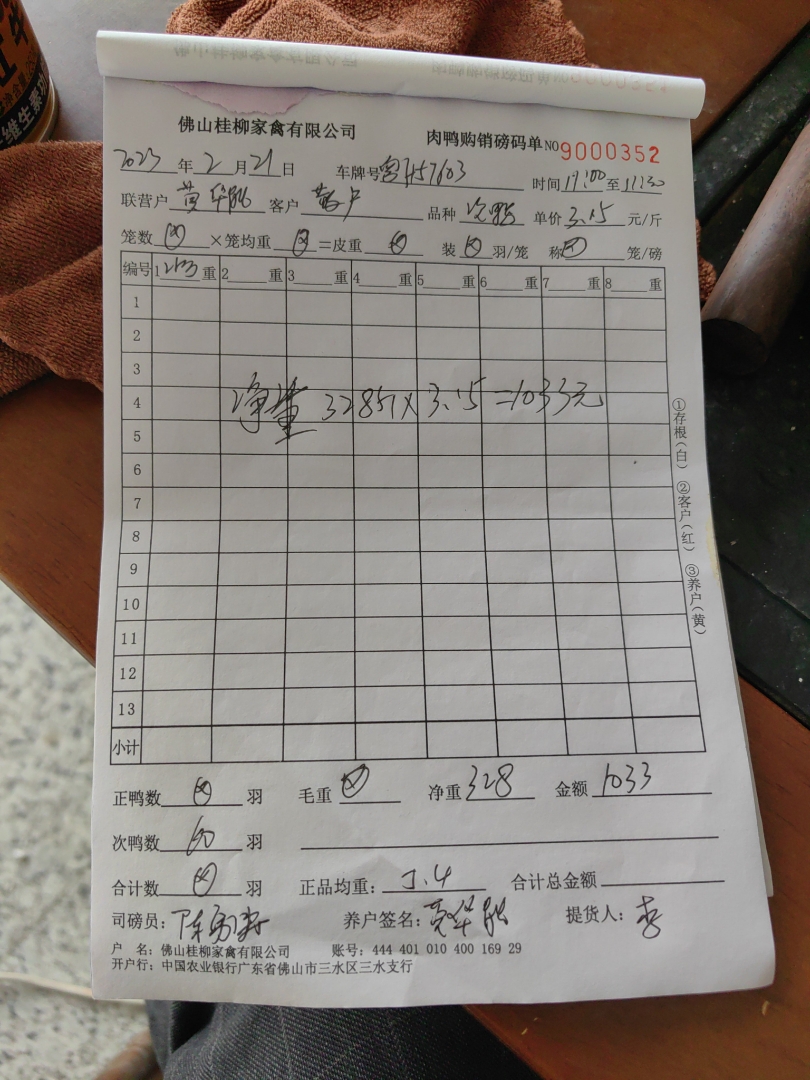 佛山桂柳家禽有限公司 肉鸭购销磅码单 NO 9000352
2023年2月21日 车牌号 H57603 时间17:00至17:30
联营户 黄华 客户 散户 品种 次鸭 单价3.15元/斤
笼数 ×笼均重 =皮重 装 羽/笼 称 笼/磅
编号 1 重 2 重 3 重 4 重 5 重 6 重 7 重 8 重
1
2
3
4 净重 328斤×3.15=1033元
5
6
7
8
9
10
11
12
13
小计
①存根(白) ②客户(红) ③养户(黄)
正鸭数 羽 毛重 净重 328 金额 1033
次鸭数 60 羽
合计数 羽 正品均重: 5.4 合计总金额
司磅员: 陈 养户签名: 华 提货人: 李
户 名: 佛山桂柳家禽有限公司 账号: 444 401 010 400 169 29
开户行: 中国农业银行广东省佛山市三水区三水支行